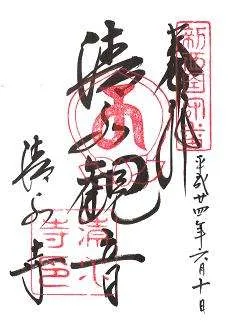 新西国
奉拝
平成廿四年六月十日
清水観音
清水寺
清水
寺印